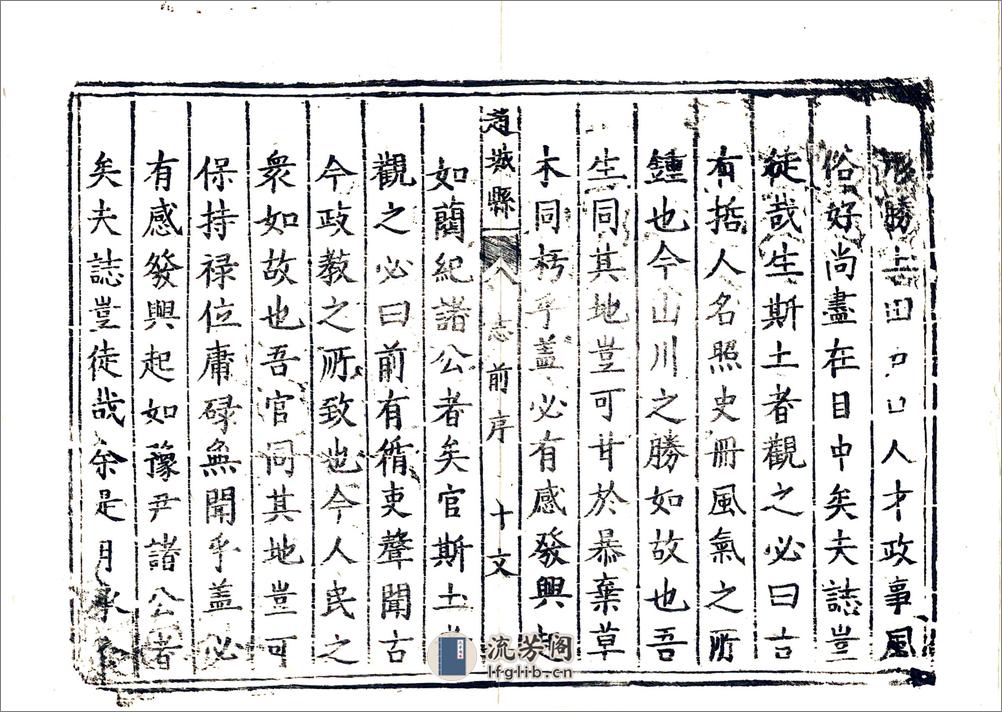 形勝土田户口人才政事風
俗好尚盡在目中矣夫誌豈
徒哉生斯土者觀之必曰古
有哲人名照史冊風氣之所
鍾也今山川之勝如故也吾
生同其地豈可甘於暴棄草
木同朽乎蓋必有感發興起
趙城縣 八 志前序 十 文
如藺紀諸公者矣官斯土者
觀之必曰前有循吏聲聞古
今政教之所致也今人民之
衆如故也吾官同其地豈可
保持禄位庸碌無聞乎蓋必
有感發興起如豫尹諸公者
矣夫誌豈徒哉余是用承
流芳阁
lfglib.cn